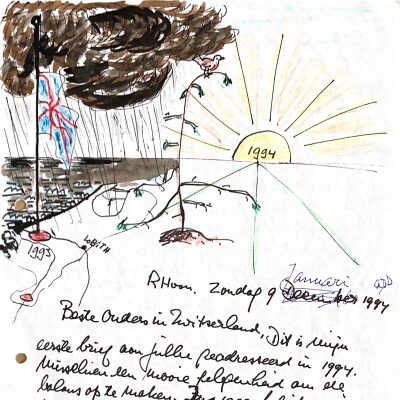 1994
1993
Rhoon. Zondag 9 December 1994
Januari
Beste Ouders in Zwitserland, Dit is mijn
eerste brief aan jullie geadresseerd in 1994.
Misschien een mooie gelegenheid om de
balans op te maken.